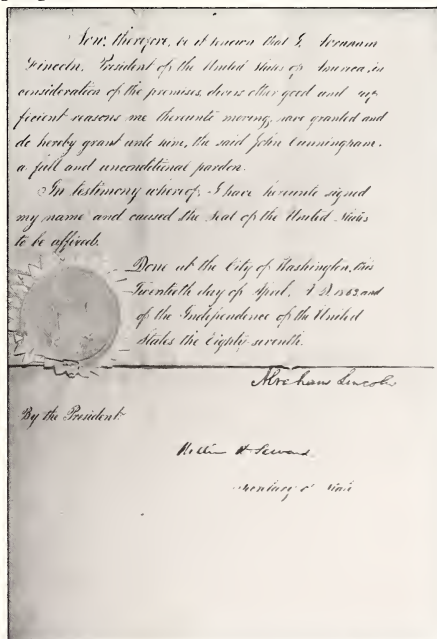 Now, therefore, be it known that I, Abraham
Lincoln, President of the United States of America, in
consideration of the premises, divers other good and suf
ficient reasons me thereunto moving, have granted and
do hereby grant unto him, the said John Cunningham,
a full and unconditional pardon.
In testimony whereof, I have hereunto signed
my name and caused the Seal of the United States
to be affixed.
Done at the City of Washington, this
Twentieth day of April, A.D. 1863 and
of the Independence of the United
States the Eighty-seventh.
Abraham Lincoln
By the President:
William H Seward
Secretary of State